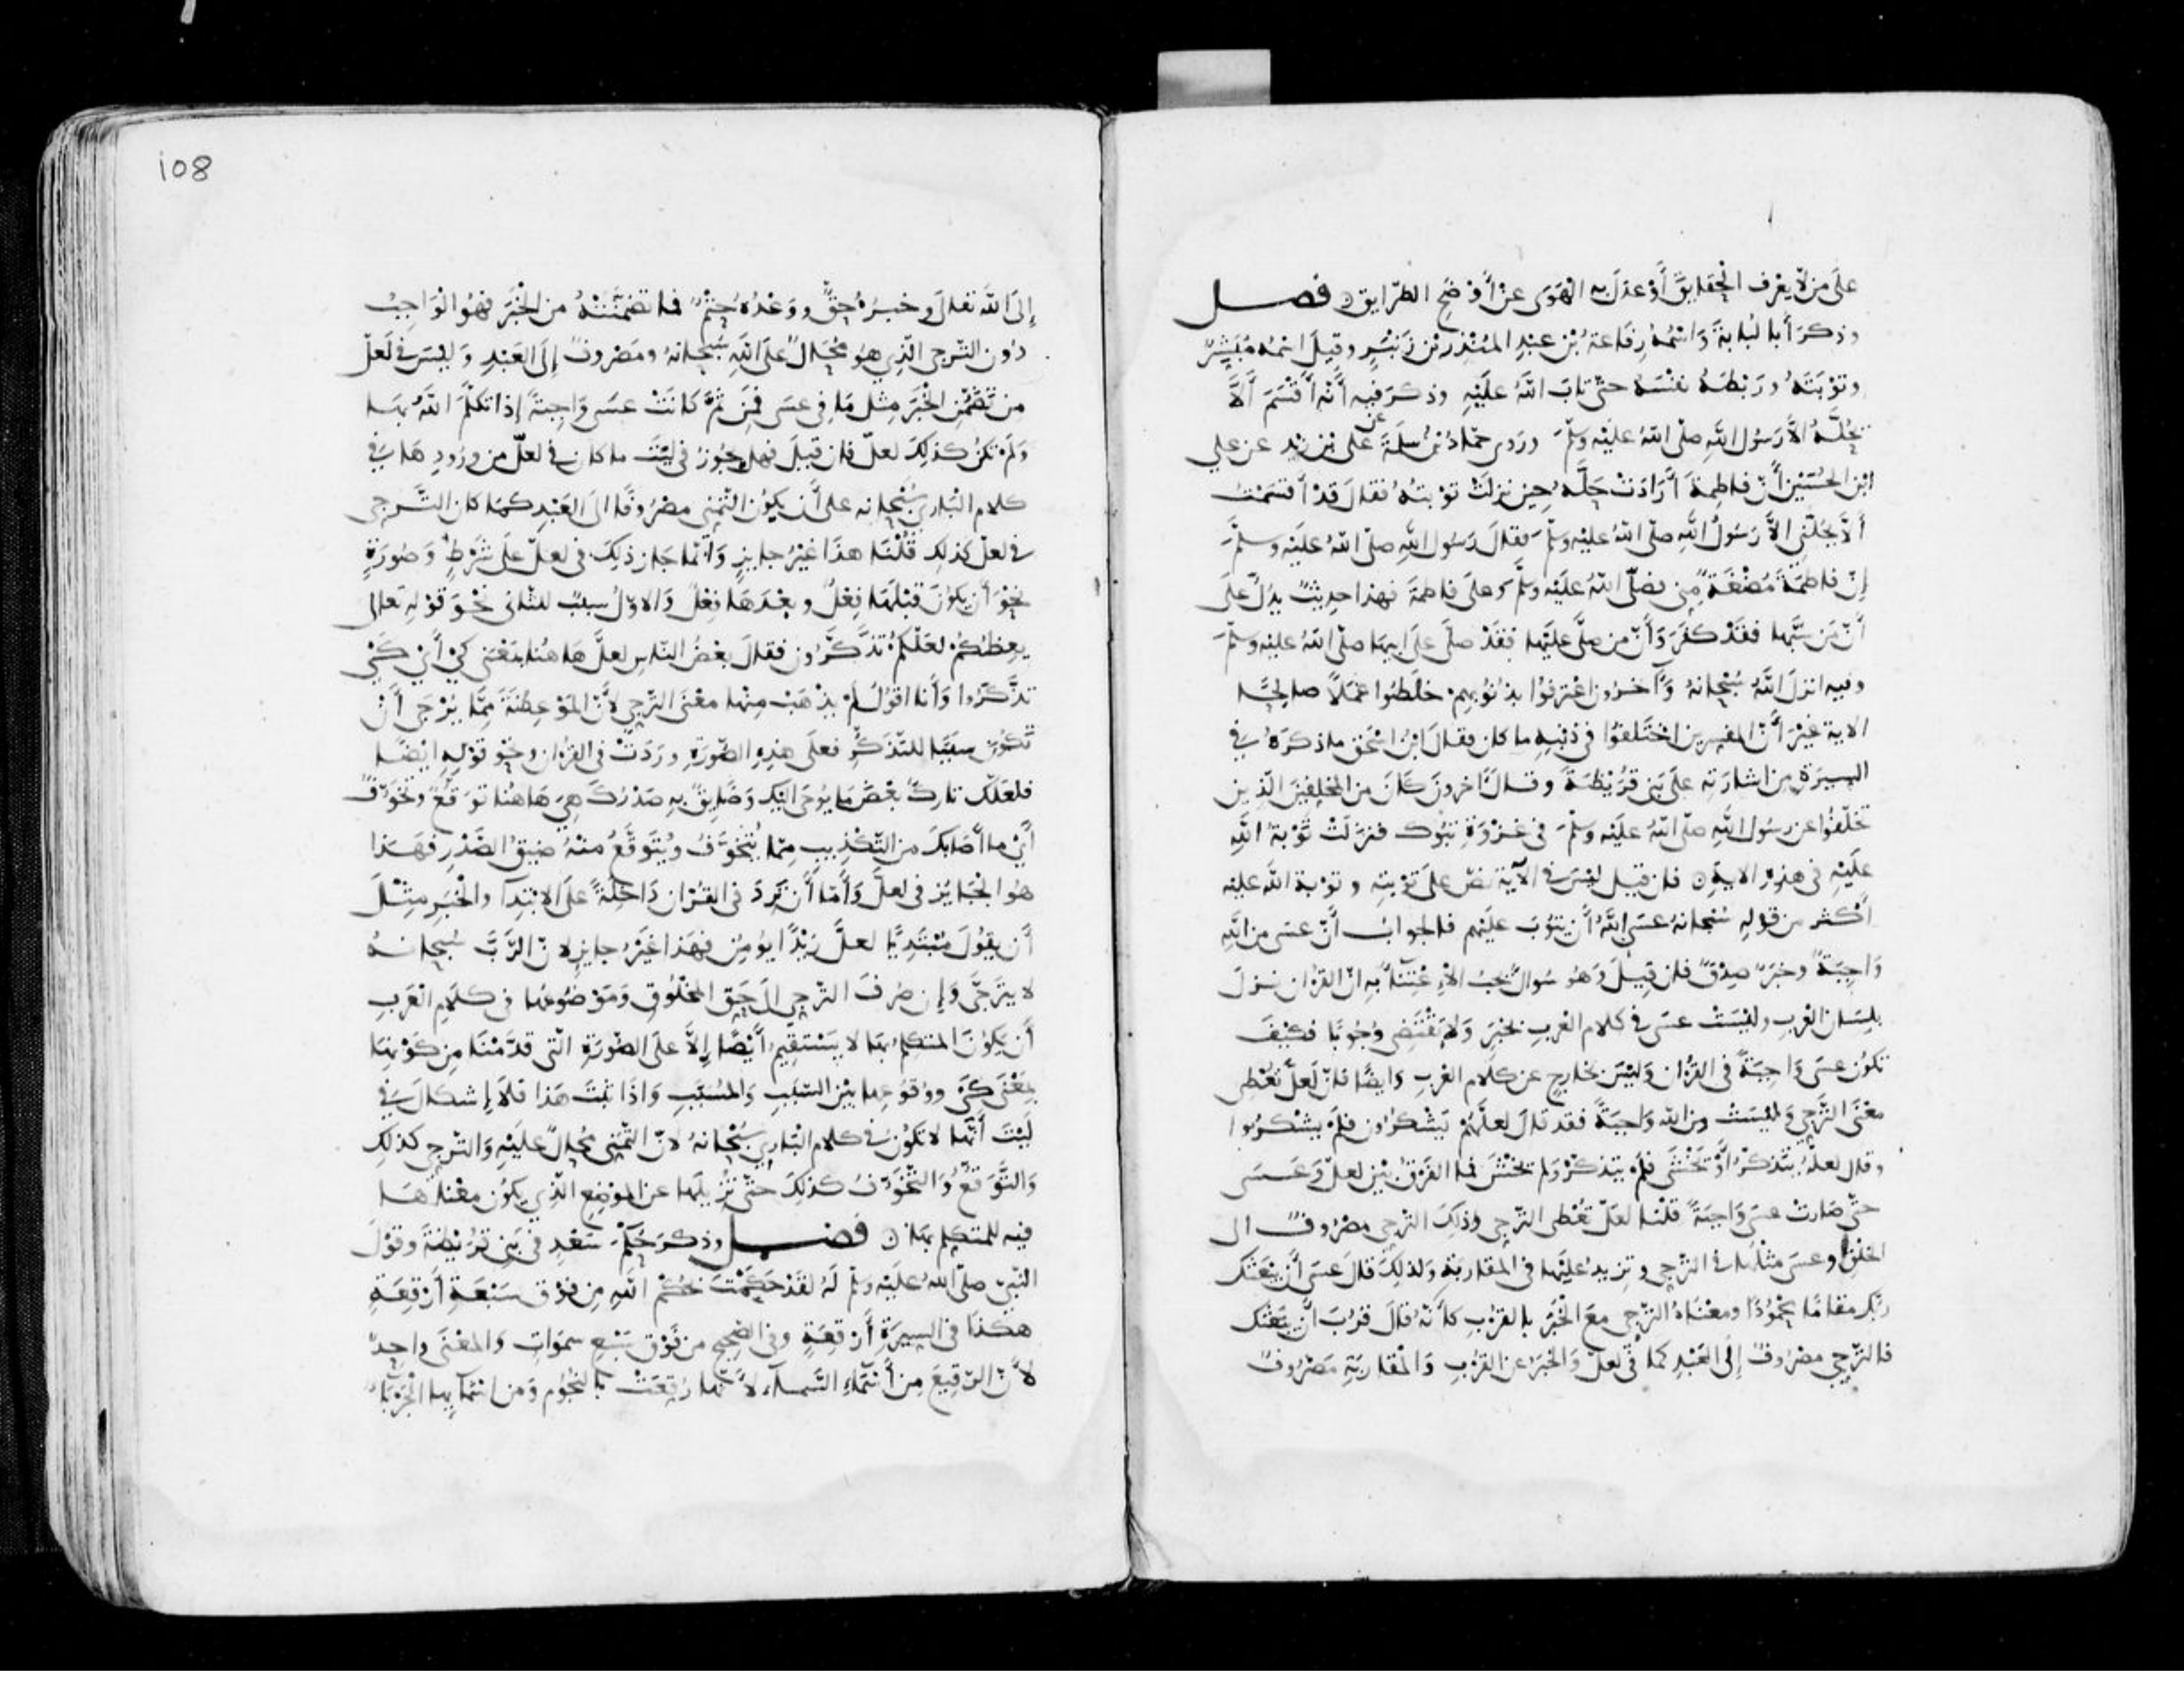 على من لا يعرف الحقايق أو عدل به الهوى عن أوضح الطرايق ۞ فصل
وذكر أبا لبابة واسمه رفاعة بن عبد المنذر بن زنبر وقيل اسمه مبشر
وتوبته وربطه نفسه حتى تاب الله عليه وذكر فيه أنه أقسم ألا
يحله الا رسول الله صلى الله عليه وسلم وروى حماد بن سلمة عن علي بن زيد عن علي
ابن الحسين أن فاطمة أرادت حله حين نزلت توبته فقال قد أقسمت
ألا يحلني الا رسول الله صلى الله عليه وسلم فقال رسول الله صلى الله عليه وسلم
إن فاطمة مضغة مني فصلى الله عليه وسلم وعلى فاطمة فهذا حديث يدل على
أن من سبها فقد كفر وأن من صلى عليها فقد صلى على ابيها صلى الله عليه وسلم
وفيه انزل الله سبحانه وآخرون اعترفوا بذنوبهم خلطوا عملا صالحا
الاية غير أن المفسرين اختلفوا في ذنبه ما كان فقال ابن اسحق ما ذكره في
السيرة من اشارته على بني قريظة وقال آخرون كان من المخلفين الذين
تخلفوا عن رسول الله صلى الله عليه وسلم في غزوة تبوك فنزلت توبة الله
عليه في هذه الاية ۞ فان قيل ليس في الآية نص على توبته وتوبة الله عليه
أكثر من قوله سبحانه عسى الله أن يتوب عليهم فالجواب أن عسى من الله
واجبة وخبر صدق فان قيل وهو سوال يجب الاعتناء به ان القرءان نزل
بلسان العرب وليست عسى في كلام العرب بخبر ولا تقتضي وجوبا فكيف
تكون عسى واجبة في القرءان وليس بخارج عن كلام العرب وايضا فان لعل تعطي
معنى الترجي وليست من الله واجبة فقد قال لعلهم يشكرون فلم يشكروا
وقال لعله يتذكر أو يخشى فلم يتذكر ولم يخش فما الفرق بين لعل وعسى
حتى صارت عسى واجبة قلنا لعل تعطي الترجي وذلك الترجي مصروف الى
الخلق وعسى مثلها في الترجي وتزيد عليها في المقاربة ولذلك قال عسى أن يبعثك
ربك مقاما محمودا ومعناه الترجي مع الخبر بالقرب كأنه قال قرب أن يبعثك
فالترجي مصروف إلى العبد كما في لعل والخبر عن القرب والمقاربة مصروف
108
إلى الله تعالى وخبره حق ووعده حتم فما تضمنته من الخبر فهو الواجب
دون الترجي الذي هو محال على الله سبحانه ومصروف إلى العبد وليس في لعل
من تضمن الخبر مثل ما في عسى فمن ثم كانت عسى واجبة إذا تكلم الله بها
ولم تكن كذلك لعل فان قيل فهل يجوز في ليت ما كان في لعل من ورودها في
كلام الباري سبحانه على أن يكون التمني مصروفا الى العبد كما كان الترجي
في لعل كذلك قلنا هذا غير جايز وانما جاز ذلك في لعل على شرط وصورة
نحو أن يكون قبلها فعل وبعدها فعل والاول سبب للثاني نحو قوله تعالى
يعظكم لعلكم تذكرون فقال بعض الناس لعل هاهنا بمعنى كي أي كي
تذكروا وأنا اقول لم يذهب منها معنى الترجي لأن الموعظة مما يرجى أن
تكون سببا للتذكر فعلى هذه الصورة وردت في القرءان ونحو قوله ايضا
فلعلك تارك بعض ما يوحى اليك وضايق به صدرك هي هاهنا توقع وتخوف
أي ما أصابك من التكذيب مما يتخوف ويتوقع منه ضيق الصدر فهذا
هو الجايز في لعل وأما أن ترد في القرءان داخلة على الابتدآ والخبر مثل
أن يقول مبتديا لعل زيدا يومن فهذا غير جايز لان الرب سبحانه
لا يترجى وإن صرف الترجي الى حق المخلوق وموضوعها في كلام العرب
أن يكون المتكلم بها لا يستقيم أيضا إلا على الصورة التي قدمنا من كونها
بمعنى كي ووقوعها بين السبب والمسبب واذا ثبت هذا فلا إشكال في
ليت أنها لا تكون في كلام الباري سبحانه لان التمني محال عليه والترجي كذلك
والتوقع والتخوف كذلك حتى تزيلها عن الموضع الذي يكون معناها
فيه للمتكلم بها ۞ فصل وذكر حكم سعد في بني قريظة وقول
النبي صلى الله عليه وسلم له لقد حكمت بحكم الله من فوق سبعة أرقعة
هكذا في السيرة أرقعة وفي الصحيح من فوق سبع سموات والمعنى واحد
لأن الرقيع من أسماء السماء لأنها رقعت بالنجوم ومن اسمايها الجربا